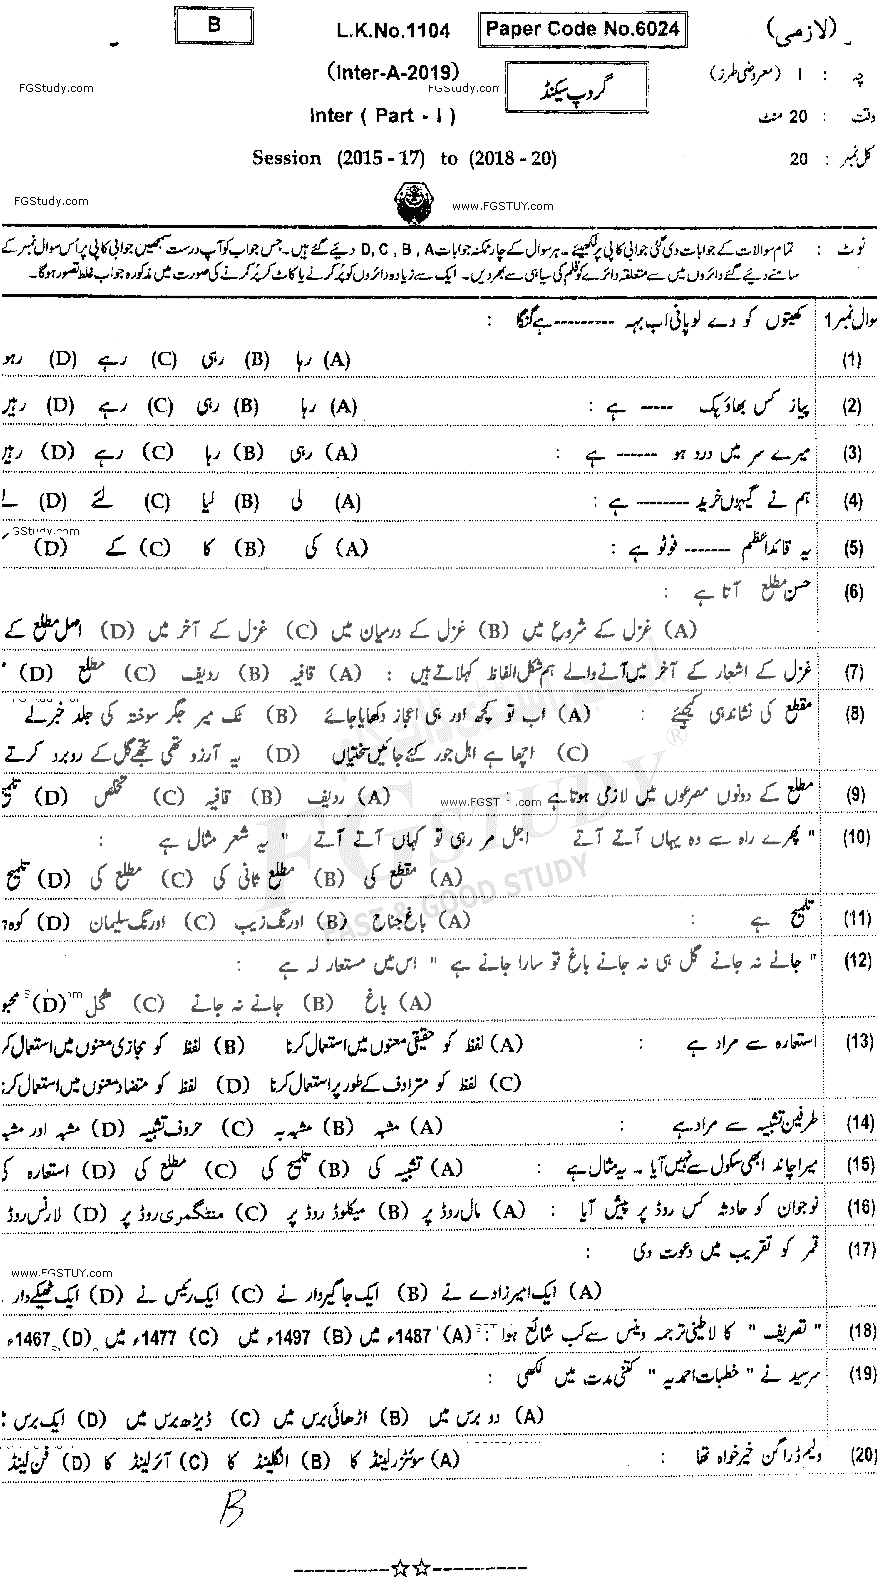 B L.K.No.1104 Paper Code No.6024 (لازمی)
(Inter-A-2019) گروپ سیکنڈ چہ : I (معروضی طرز)
FGStudy.com FGStudy.com
Inter ( Part - I ) وقت : 20 منٹ
Session (2015 - 17) to (2018 - 20) کل نمبر : 20
FGStudy.com www.FGSTUY.com
نوٹ : تمام سوالات کے جوابات دی گئی جوابی کاپی پر لکھیئے ۔ ہر سوال کے چار ممکنہ جوابات D , C , B , A دیئے گئے ہیں ۔ جس جواب کو آپ درست سمجھیں جوابی کاپی پر اُس سوال نمبر کے
سامنے دیئے گئے دائروں میں سے متعلقہ دائرے کو قلم کی سیاہی سے بھر دیں ۔ ایک سے زیادہ دائروں کو پُر کرنے یا کاٹ کر پُر کرنے کی صورت میں مذکورہ جواب غلط تصور ہوگا۔
سوال نمبر 1 کھیتوں کو دے لو پانی اب بہہ --------- ہے گنگا :
(1) (A) رہا (B) رہی (C) رہے (D) رہو
(2) پیاز کس بھاؤ بِک ----- ہے : (A) رہا (B) رہی (C) رہے (D)
(3) میرے سر میں درد ہو ------ ہے : (A) رہی (B) رہا (C) رہے (D)
(4) ہم نے گیہوں خرید -------- ہے : (A) لی (B) لیا (C) لئے (D)
FGStudy.com
(5) یہ قائداعظم ------- فوٹو ہے : (A) کی (B) کا (C) کے (D)
(6) حسن مطلع آتا ہے :
(A) غزل کے شروع میں (B) غزل کے درمیان میں (C) غزل کے آخر میں (D) اصل مطلع کے
(7) غزل کے اشعار کے آخر میں آنے والے ہم شکل الفاظ کہلاتے ہیں : (A) قافیہ (B) ردیف (C) مطلع (D)
(8) مقطع کی نشاندہی کیجئے : (A) اب تو کچھ اور ہی اعجاز دکھایا جائے (B) تک میر جگر سوختہ کی جلد خبر لے
(C) اچھا ہے اہل جور کئے جائیں سختیاں (D) یہ آرزو تھی تجھے گل کے روبرو کرتے
(9) مطلع کے دونوں مصرعوں میں لازمی ہوتا ہے : (A) ردیف (B) قافیہ (C) تخلص (D) تلمیح
www.FGST .com
(10) " پھرے راہ سے وہ یہاں آتے آتے اجل مر رہی تو کہاں آتے آتے " یہ شعر مثال ہے :
(A) مقطع کی (B) مطلع ثانی کی (C) مطلع کی (D) تلمیح
(11) تلمیح ہے : (A) باغ جناح (B) اورنگ زیب (C) اورنگ سلیمان (D) کوہ
(12) " جانے نہ جانے گل ہی نہ جانے باغ تو سارا جانے ہے " اس میں مستعار لہ ہے :
(A) باغ (B) جانے نہ جانے (C) گل (D)
(13) استعارہ سے مراد ہے : (A) لفظ کو حقیقی معنوں میں استعمال کرنا (B) لفظ کو مجازی معنوں میں استعمال کر
(C) لفظ کو مترادف کے طور پر استعمال کرنا (D) لفظ کو متضاد معنوں میں استعمال کر
(14) طرفین تشبیہ سے مراد ہے : (A) مشبہ (B) مشبہ بہ (C) حروف تشبیہ (D) مشبہ اور مشبہ
(15) میرا چاند ابھی سکول سے نہیں آیا ۔ یہ مثال ہے : (A) تشبیہ کی (B) تلمیح کی (C) مطلع کی (D) استعارہ کی
(16) نوجوان کو حادثہ کس روڈ پر پیش آیا : (A) مال روڈ پر (B) میکلوڈ روڈ پر (C) منٹگمری روڈ پر (D) لارنس روڈ
(17) قمر کو تقریب میں دعوت دی :
www.FGSTUY.com
(A) ایک امیرزادے نے (B) ایک جاگیردار نے (C) ایک رئیس نے (D) ایک ٹھیکے دار
(18) " تصریف " کا لاطینی ترجمہ وینس سے کب شائع ہوا : (A) 1487ء میں (B) 1497ء میں (C) 1477ء میں (D) 1467ء
(19) سرسید نے " خطبات احمدیہ " کتنی مدت میں لکھی :
(A) دو برس میں (B) اڑھائی برس میں (C) ڈیڑھ برس میں (D) ایک برس
(20) ولیم ڈراگن خیر خواہ تھا : (A) سوئٹزرلینڈ کا (B) انگلینڈ کا (C) آئرلینڈ کا (D) فن لینڈ
B
FG STUDY
FAST & GOOD STUDY